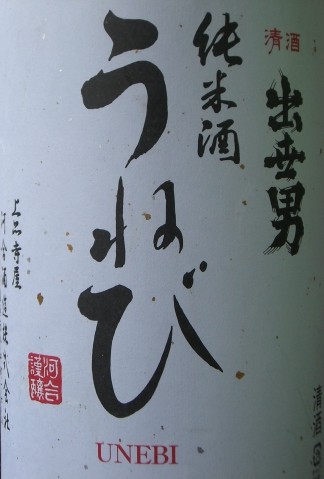 清酒
出世男
純米酒
うねび
UNEBI
上品寺屋
河合酒造株式会社
河合
謹醸
清酒